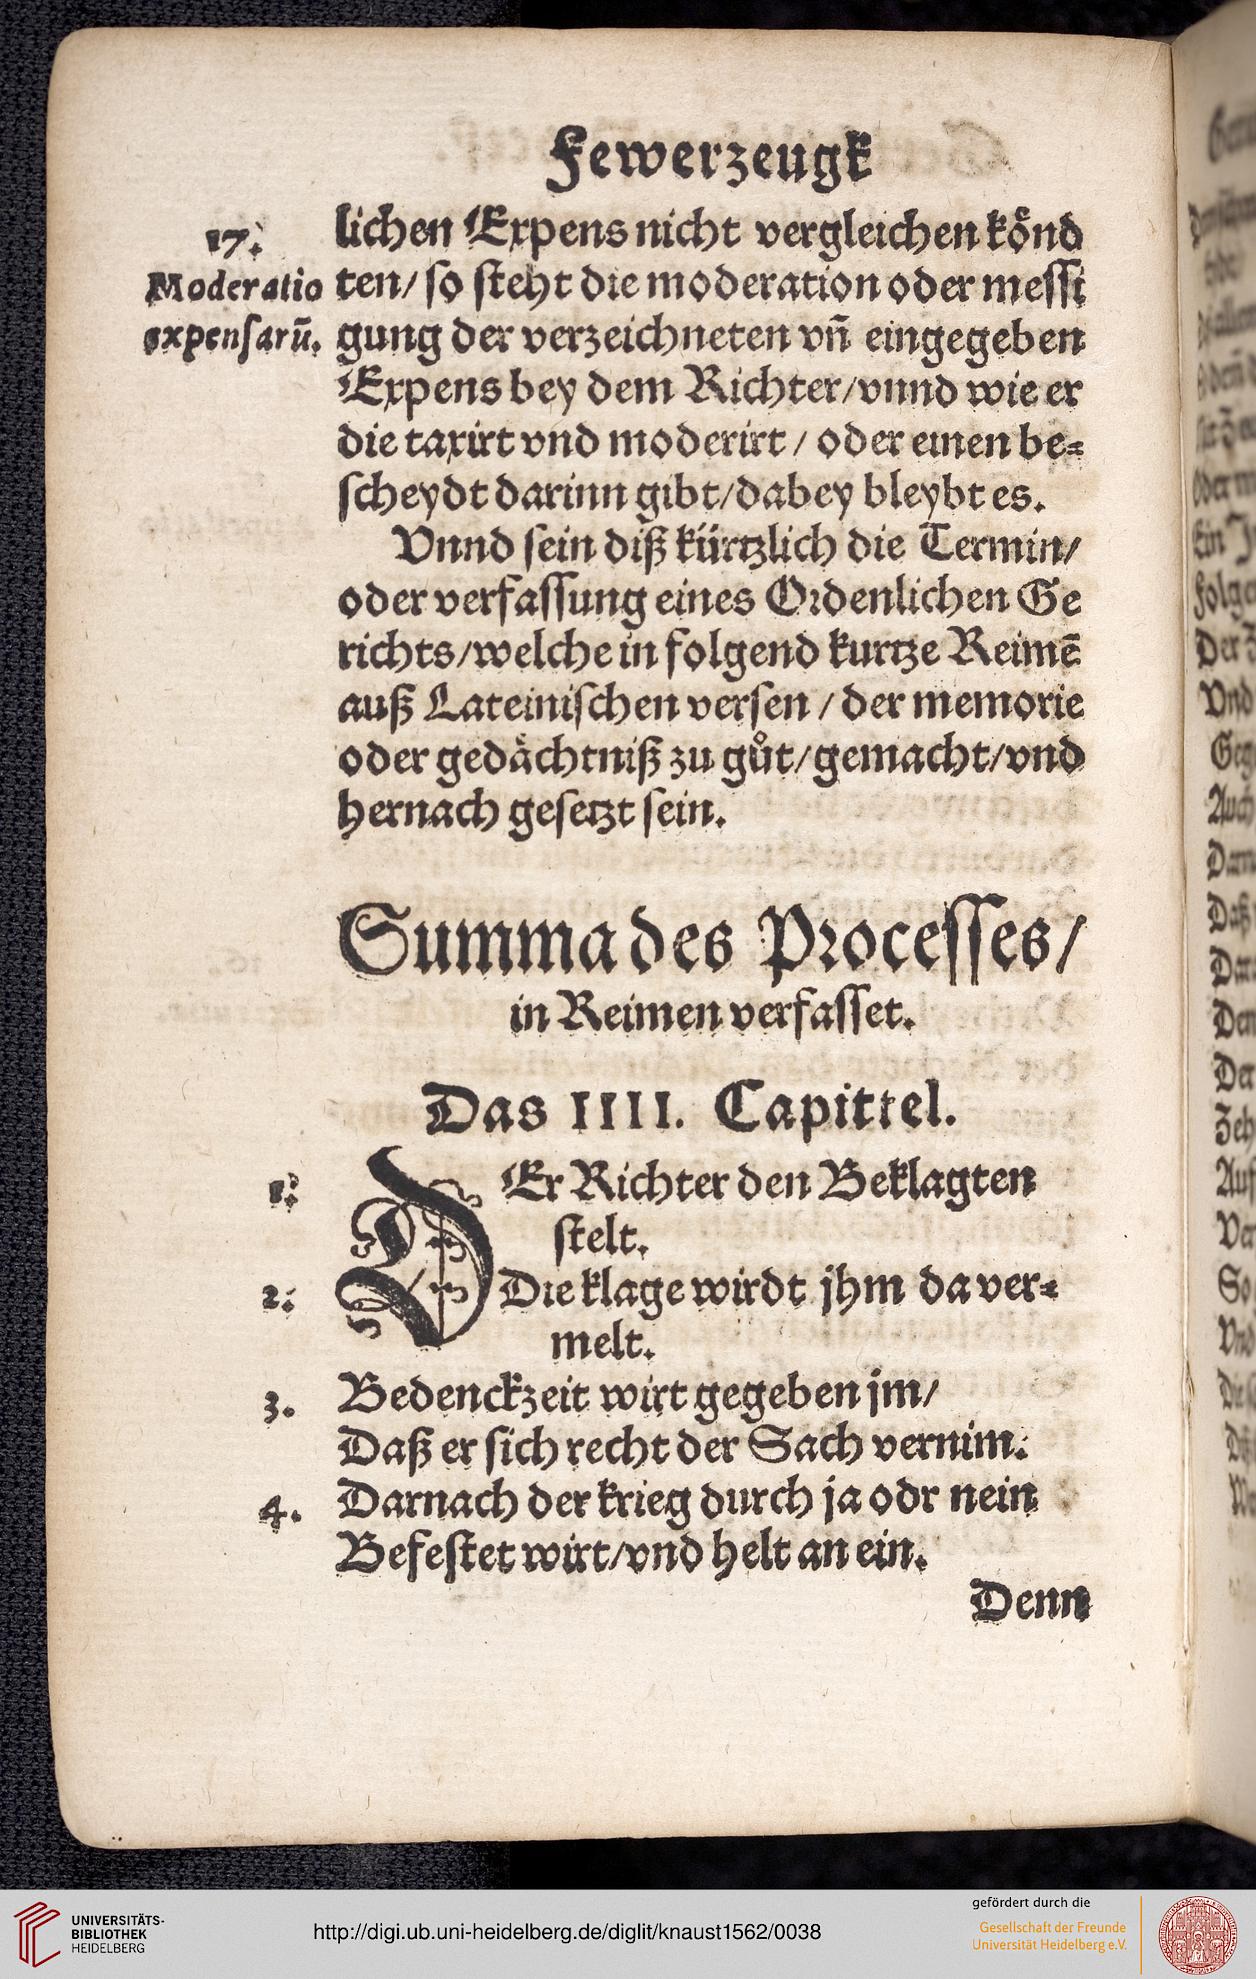 Fewerzeugk
17.
Moderatio
expensarū.
lichen Expens nicht vergleichen koͤnd
ten/ so steht die moderation oder messi
gung der verzeichneten vñ eingegeben
Expens bey dem Richter/vnnd wie er
die taxirt vnd moderirt / oder einen be⸗
scheydt darinn gibt/dabey bleybt es.
Vnnd sein diß kürtzlich die Termin/
oder verfassung eines Ordenlichen Ge
richts/welche in folgend kurtze Reimē
auß Lateinischen versen / der memorie
oder gedaͤchtniß zu guͦt/gemacht/vnd
hernach gesetzt sein.
Summa des Processes/
in Reimen verfasset.
Das IIII. Capittel.
1. DEr Richter den Beklagten
stelt.
2. Die klage wirdt jhm da ver⸗
melt.
3. Bedenckzeit wirt gegeben jm/
Daß er sich recht der Sach vernim.
4. Darnach der krieg durch ja odr nein
Befestet wirt/vnd helt an ein.
Denn
UNIVERSITÄTS-
BIBLIOTHEK
HEIDELBERG
http://digi.ub.uni-heidelberg.de/diglit/knaust1562/0038
gefördert durch die
Gesellschaft der Freunde
Universität Heidelberg e.V.